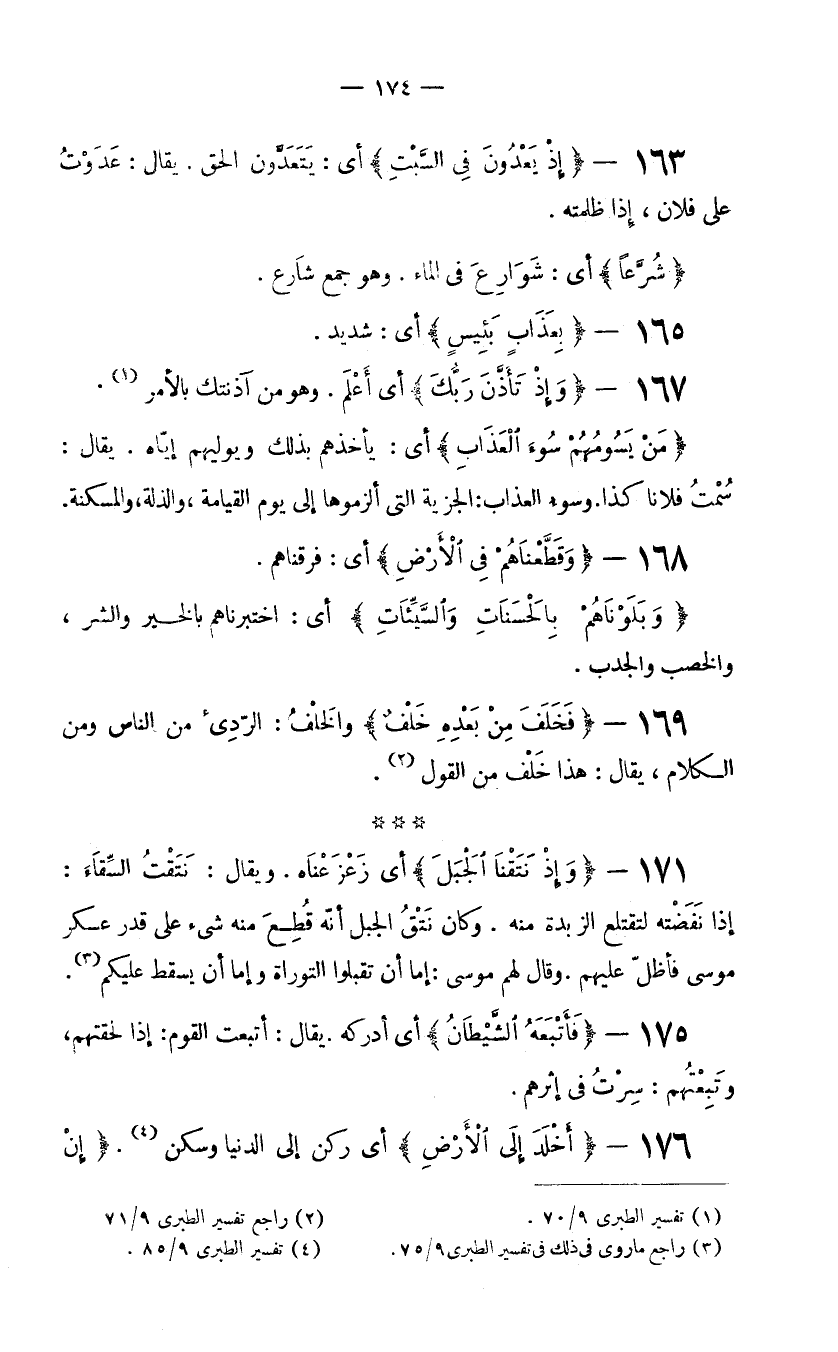 — ١٧٤ —
١٦٣ — ﴿ إِذْ يَعْدُونَ فِي السَّبْتِ ﴾ أى : يَتَعَدَّون الحق . يقال : عَدَوْتُ
على فلان ، إِذا ظلمته .
﴿ شُرَّعاً ﴾ أى : شَوَارِعَ فى الماء . وهو جمع شارع .
١٦٥ — ﴿ بِعَذَابٍ بَئِيسٍ ﴾ أى : شديد .
١٦٧ — ﴿ وَإِذْ تَأَذَّنَ رَبُّكَ ﴾ أى أَعْلَم . وهو من آذنتك بالأمر (١) .
﴿ مَنْ يَسُومُهُمْ سُوءَ ٱلْعَذَابِ ﴾ أى : يأخذهم بذلك ويوليهم إيّاه . يقال :
سُمْتُ فلانا كذا. وسوء العذاب: الجزية التى ألزموها إلى يوم القيامة ، والذلة، والمسكنة.
١٦٨ — ﴿ وَقَطَّعْنَاهُمْ فِي ٱلْأَرْضِ ﴾ أى : فرقناهم .
﴿ وَبَلَوْنَاهُمْ بِالْحَسَنَاتِ وَٱلسَّيِّئَاتِ ﴾ أى : اختبرناهم بالخير والشر ،
والخصب والجدب .
١٦٩ — ﴿ فَخَلَفَ مِنْ بَعْدِهِ خَلْفٌ ﴾ والخَلْفُ : الرّدِىء من الناس ومن
الكلام ، يقال : هذا خَلْف من القول (٢) .
☆ ☆ ☆
١٧١ — ﴿ وَإِذْ نَتَقْنَا ٱلْجَبَلَ ﴾ أى زَعْزَعْنَاه . ويقال : نَتَقْتُ السِّقَاءَ :
إذا نَفَضْته لتقتلع الزبدة منه . وكان نَتْقُ الجبل أنّه قُطِعَ منه شىء على قدر عسكر
موسى فأظلّ عليهم . وقال لهم موسى : إما أن تقبلوا التوراة وإما أن يسقط عليكم (٣) .
١٧٥ — ﴿ فَأَتْبَعَهُ ٱلشَّيْطَانُ ﴾ أى أدركه . يقال : أتبعت القوم: إذا لحقتهم،
وتَبِعْتُهم : سِرْتُ فى إثرهم .
١٧٦ — ﴿ أَخْلَدَ إِلَى ٱلْأَرْضِ ﴾ أى ركن إلى الدنيا وسكن (٤) . ﴿ إِنْ
(١) تفسير الطبرى ٧٠/٩ . (٢) راجع تفسير الطبرى ٧١/٩
(٣) راجع ماروى فى ذلك فى تفسير الطبرى ٧٥/٩. (٤) تفسير الطبرى ٨٥/٩ .